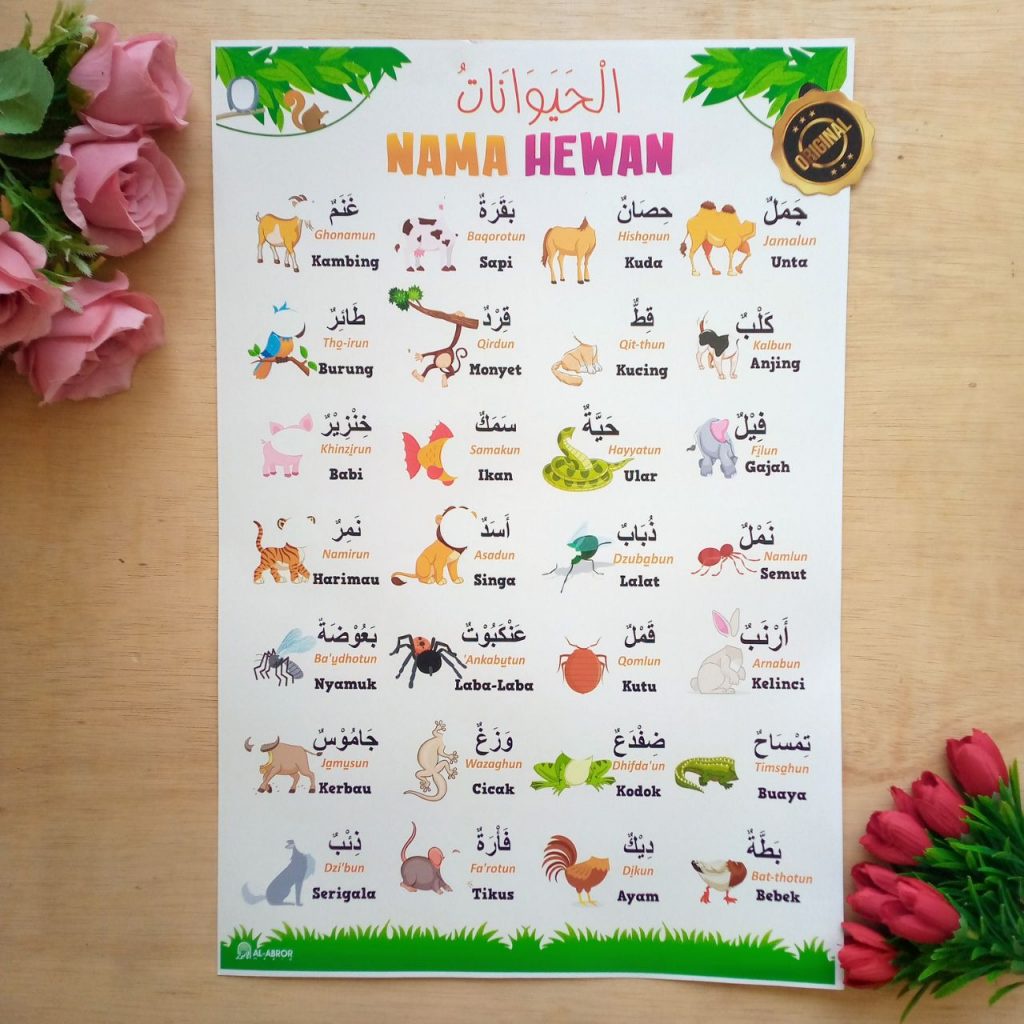 الْحَيَوَانَاتُ
NAMA HEWAN
ORIGINAL
غَنَمٌ
Ghonamun
Kambing
بَقَرَةٌ
Baqorotun
Sapi
حِصَانٌ
Hishonun
Kuda
جَمَلٌ
Jamalun
Unta
طَائِرٌ
Tho-irun
Burung
قِرْدٌ
Qirdun
Monyet
قِطٌّ
Qit-thun
Kucing
كَلْبٌ
Kalbun
Anjing
خِنْزِيْرٌ
Khinzirun
Babi
سَمَكٌ
Samakun
Ikan
حَيَّةٌ
Hayyatun
Ular
فِيْلٌ
Filun
Gajah
نَمِرٌ
Namirun
Harimau
أَسَدٌ
Asadun
Singa
ذُبَابٌ
Dzubabun
Lalat
نَمْلٌ
Namlun
Semut
بَعُوْضَةٌ
Ba'udhotun
Nyamuk
عَنْكَبُوْتٌ
'Ankabutun
Laba-Laba
قَمْلٌ
Qomlun
Kutu
أَرْنَبٌ
Arnabun
Kelinci
جَامُوْسٌ
Jamusun
Kerbau
وَزَغٌ
Wazaghun
Cicak
ضِفْدَعٌ
Dhifda'un
Kodok
تِمْسَاحٌ
Timsahun
Buaya
ذِئْبٌ
Dzi'bun
Serigala
فَأْرَةٌ
Fa'rotun
Tikus
دِيْكٌ
Dikun
Ayam
بَطَّةٌ
Bat-thotun
Bebek
AL-ABROR